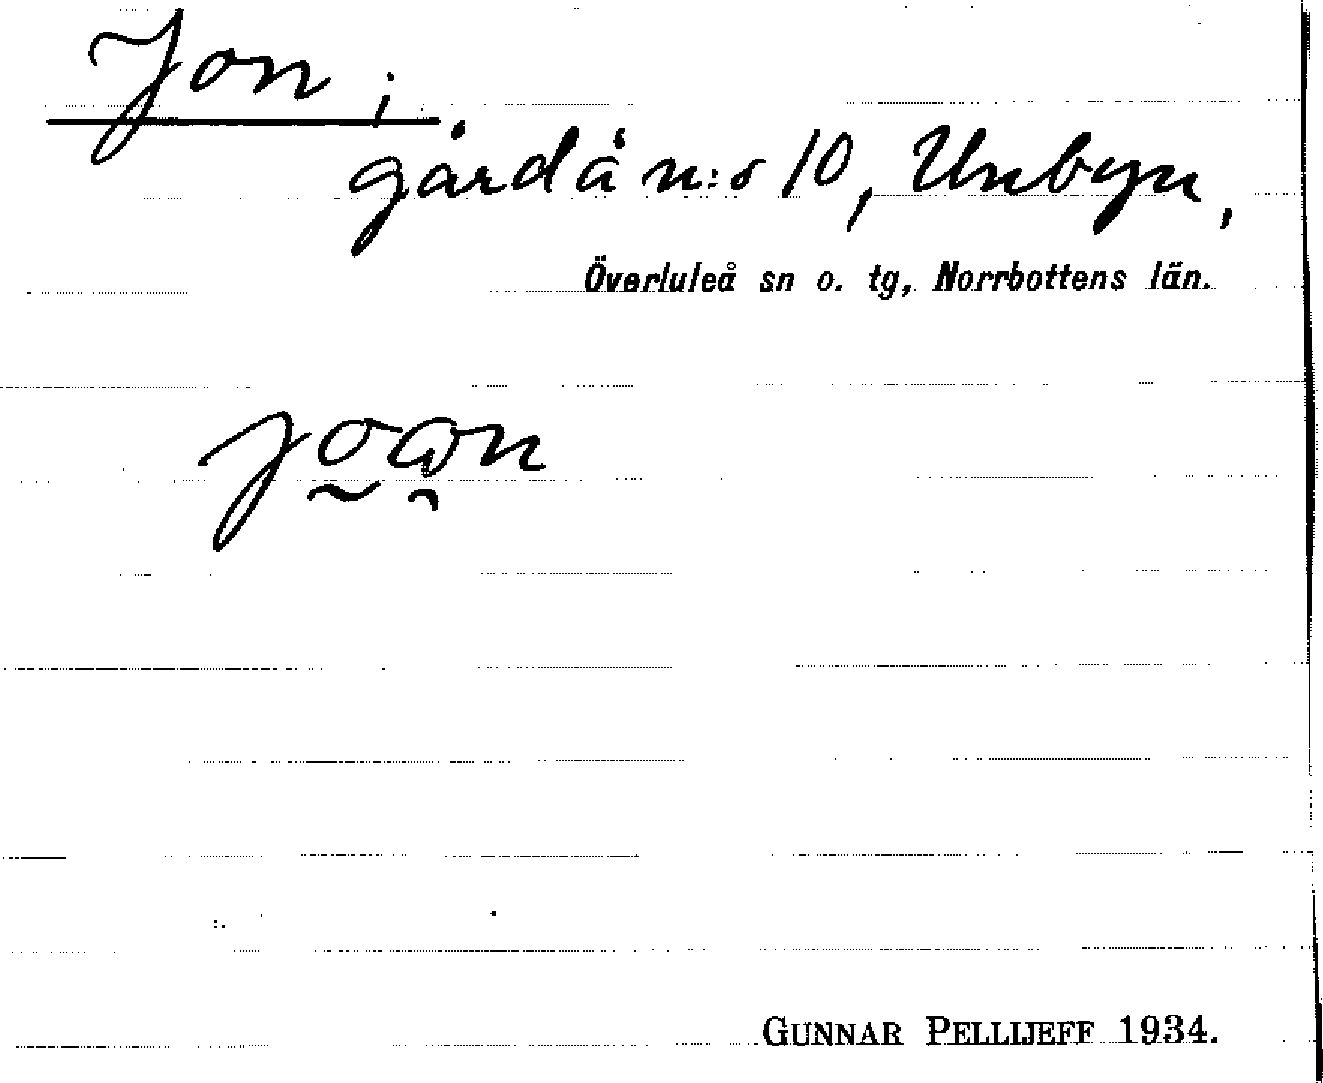 Jon;
gård å n:o 10, Unbyn,
Överluleå sn o. tg, Norrbottens län.
GUNNAR PELLIJEFF 1934.